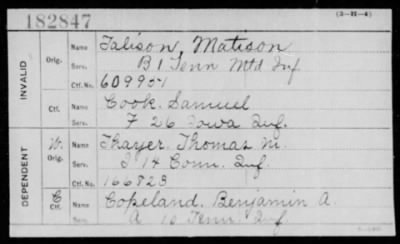 182847
(3-21-4)
INVALID
Orig.
Name
Talison, Matison
Serv.
B 1 Tenn Mtd Inf
Ctf. No.
609951
Ctf.
Name
Cook. Samuel
Serv.
F 26 Iowa Inf.
DEPENDENT
W.
Orig.
Name
Thayer. Thomas M.
Serv.
I 14 Conn. Inf.
Ctf. No.
166823
C
Ctf.
Name
Copeland. Benjamin A.
Serv.
A 10 Tenn. Inf.